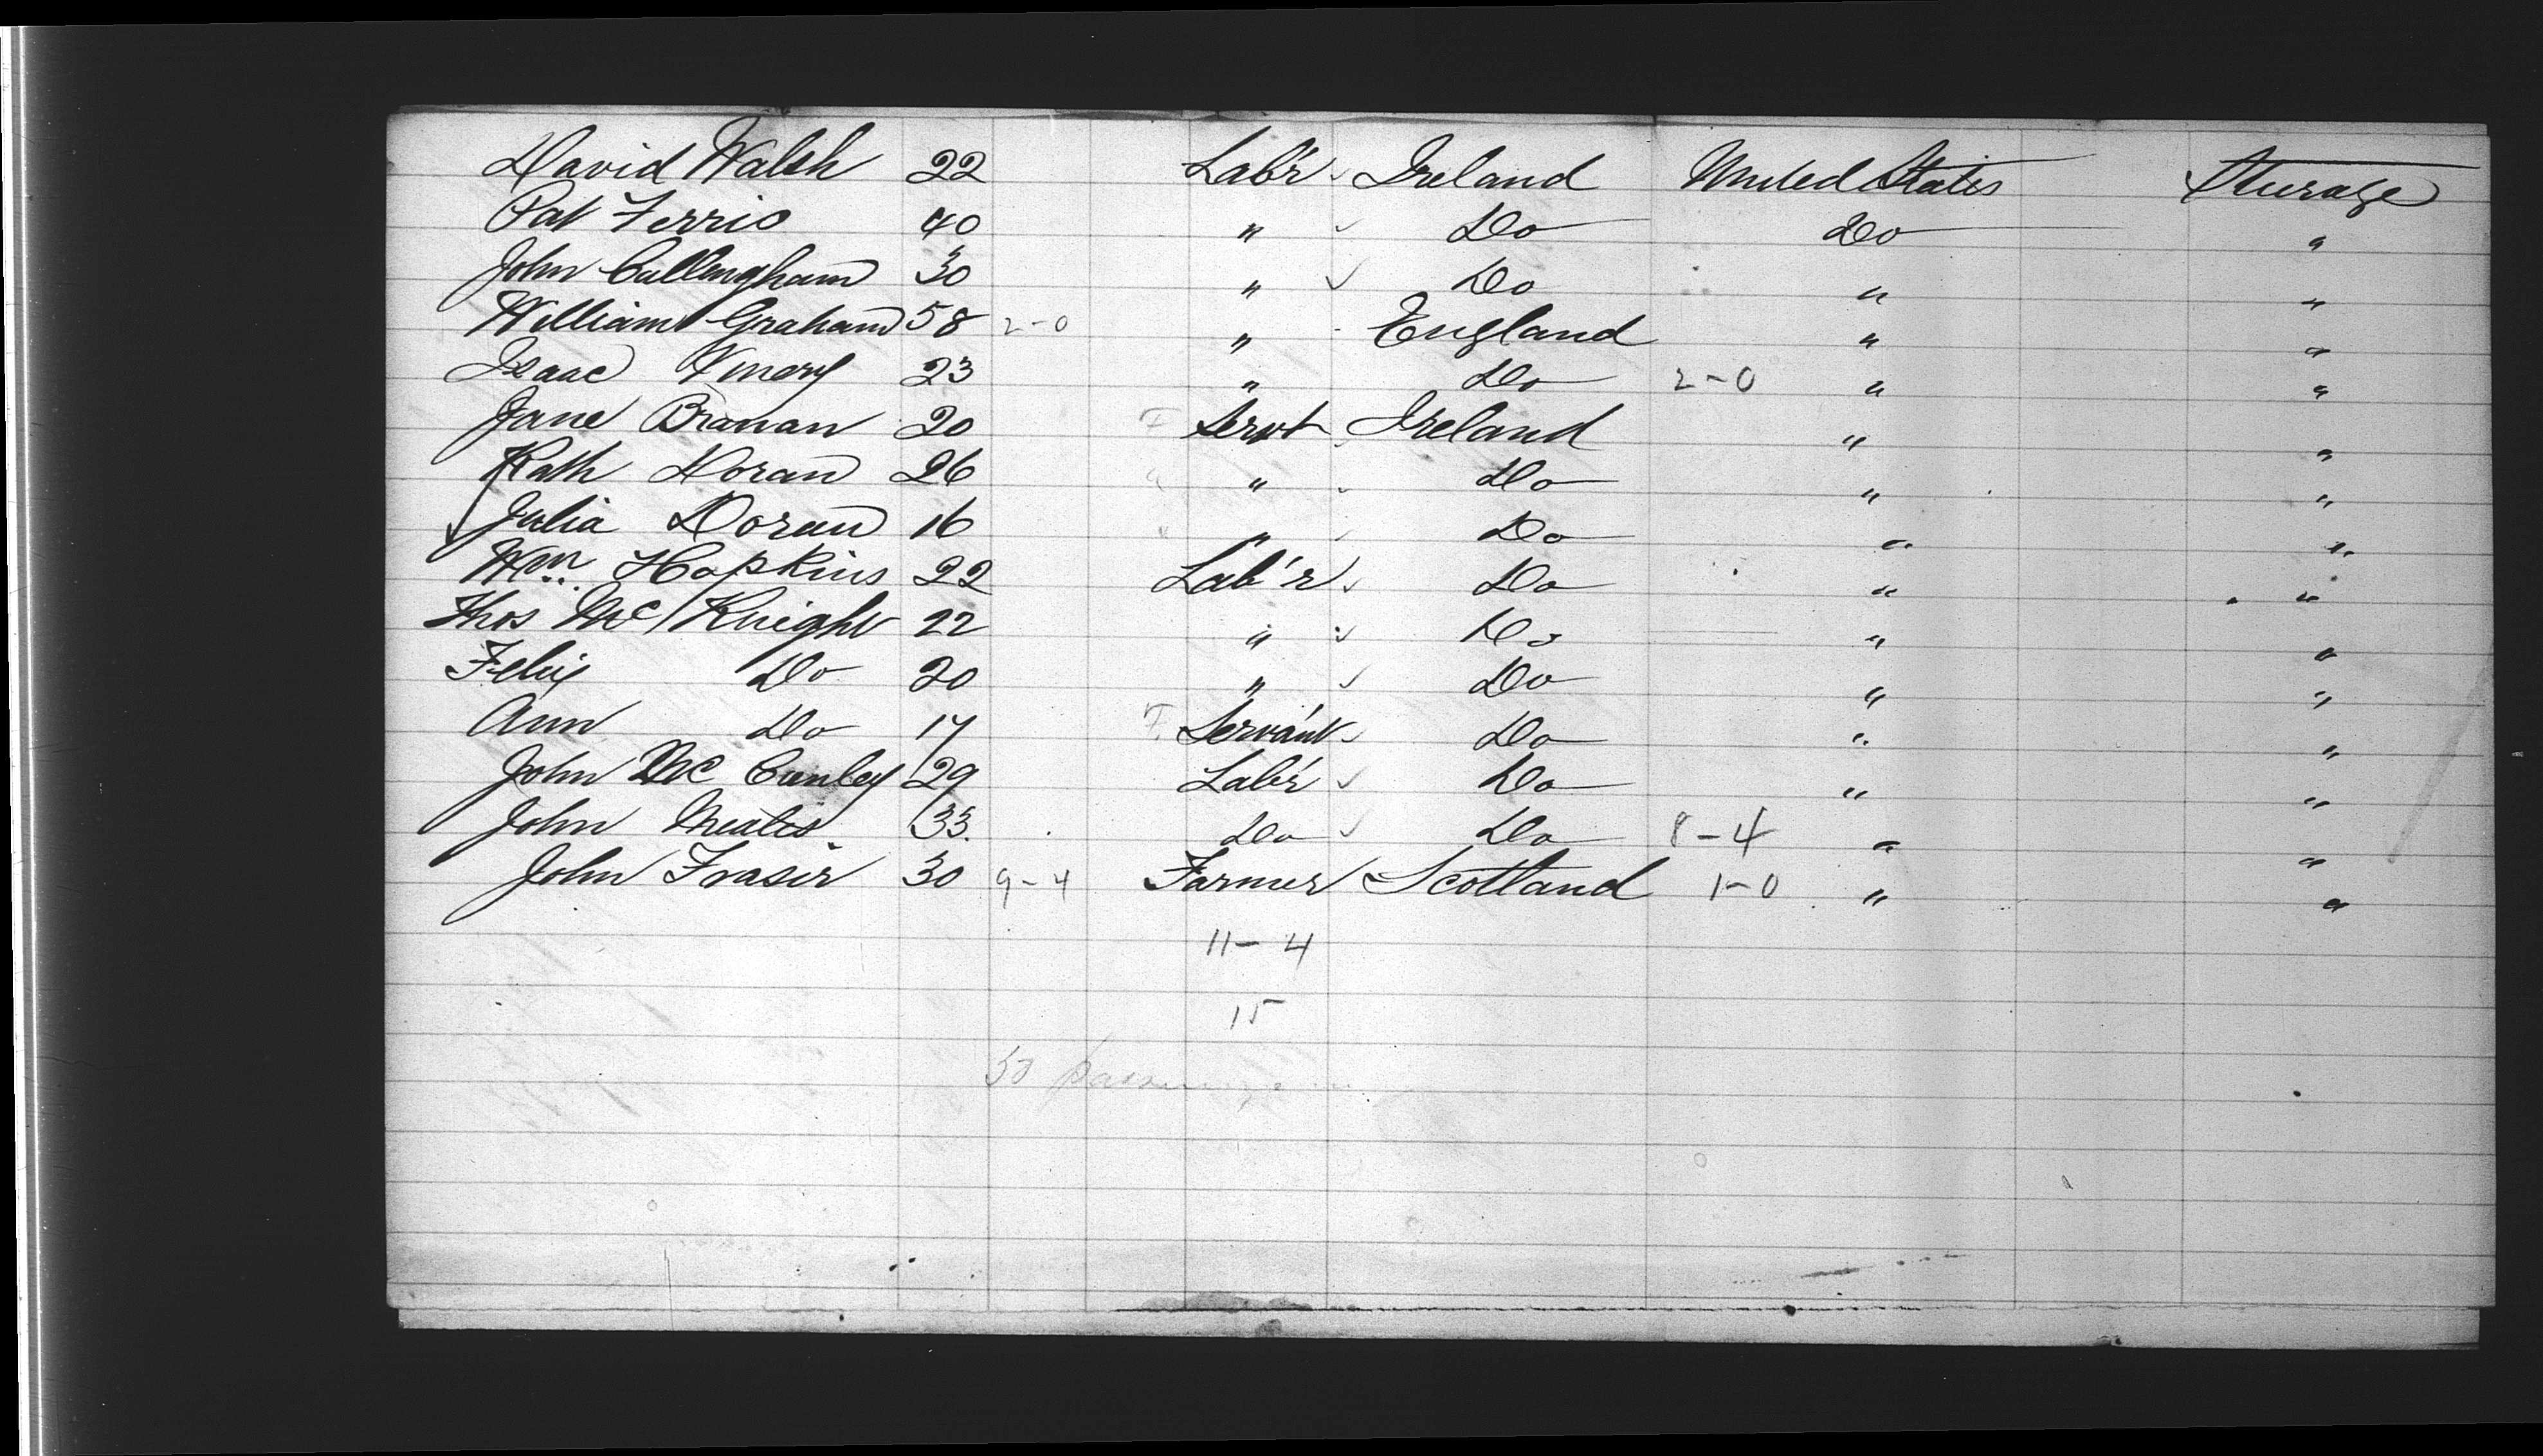 David Walsh 22 Lab'r Ireland United States Steerage
Pat Ferris 40 " Do Do "
John Cullingham 30 " Do " "
William Graham 58 2-0 " England " "
Isaac Emery 23 " Do 2-0 " "
Jane Branan 20 F Servt Ireland " "
Kath Doran 26 " Do " "
Julia Doran 16 " Do " "
Wm Hopkins 22 Lab'r Do " "
Thos McKnight 22 " Do " "
Felix Do 20 " Do " "
Ann Do 17 F Servant Do " "
John Mc 29 Lab'r Do " "
John 33 Do Do 8-4 " "
John Fraser 30 9-4 Farmer Scotland 1-0 " "
11-4
15